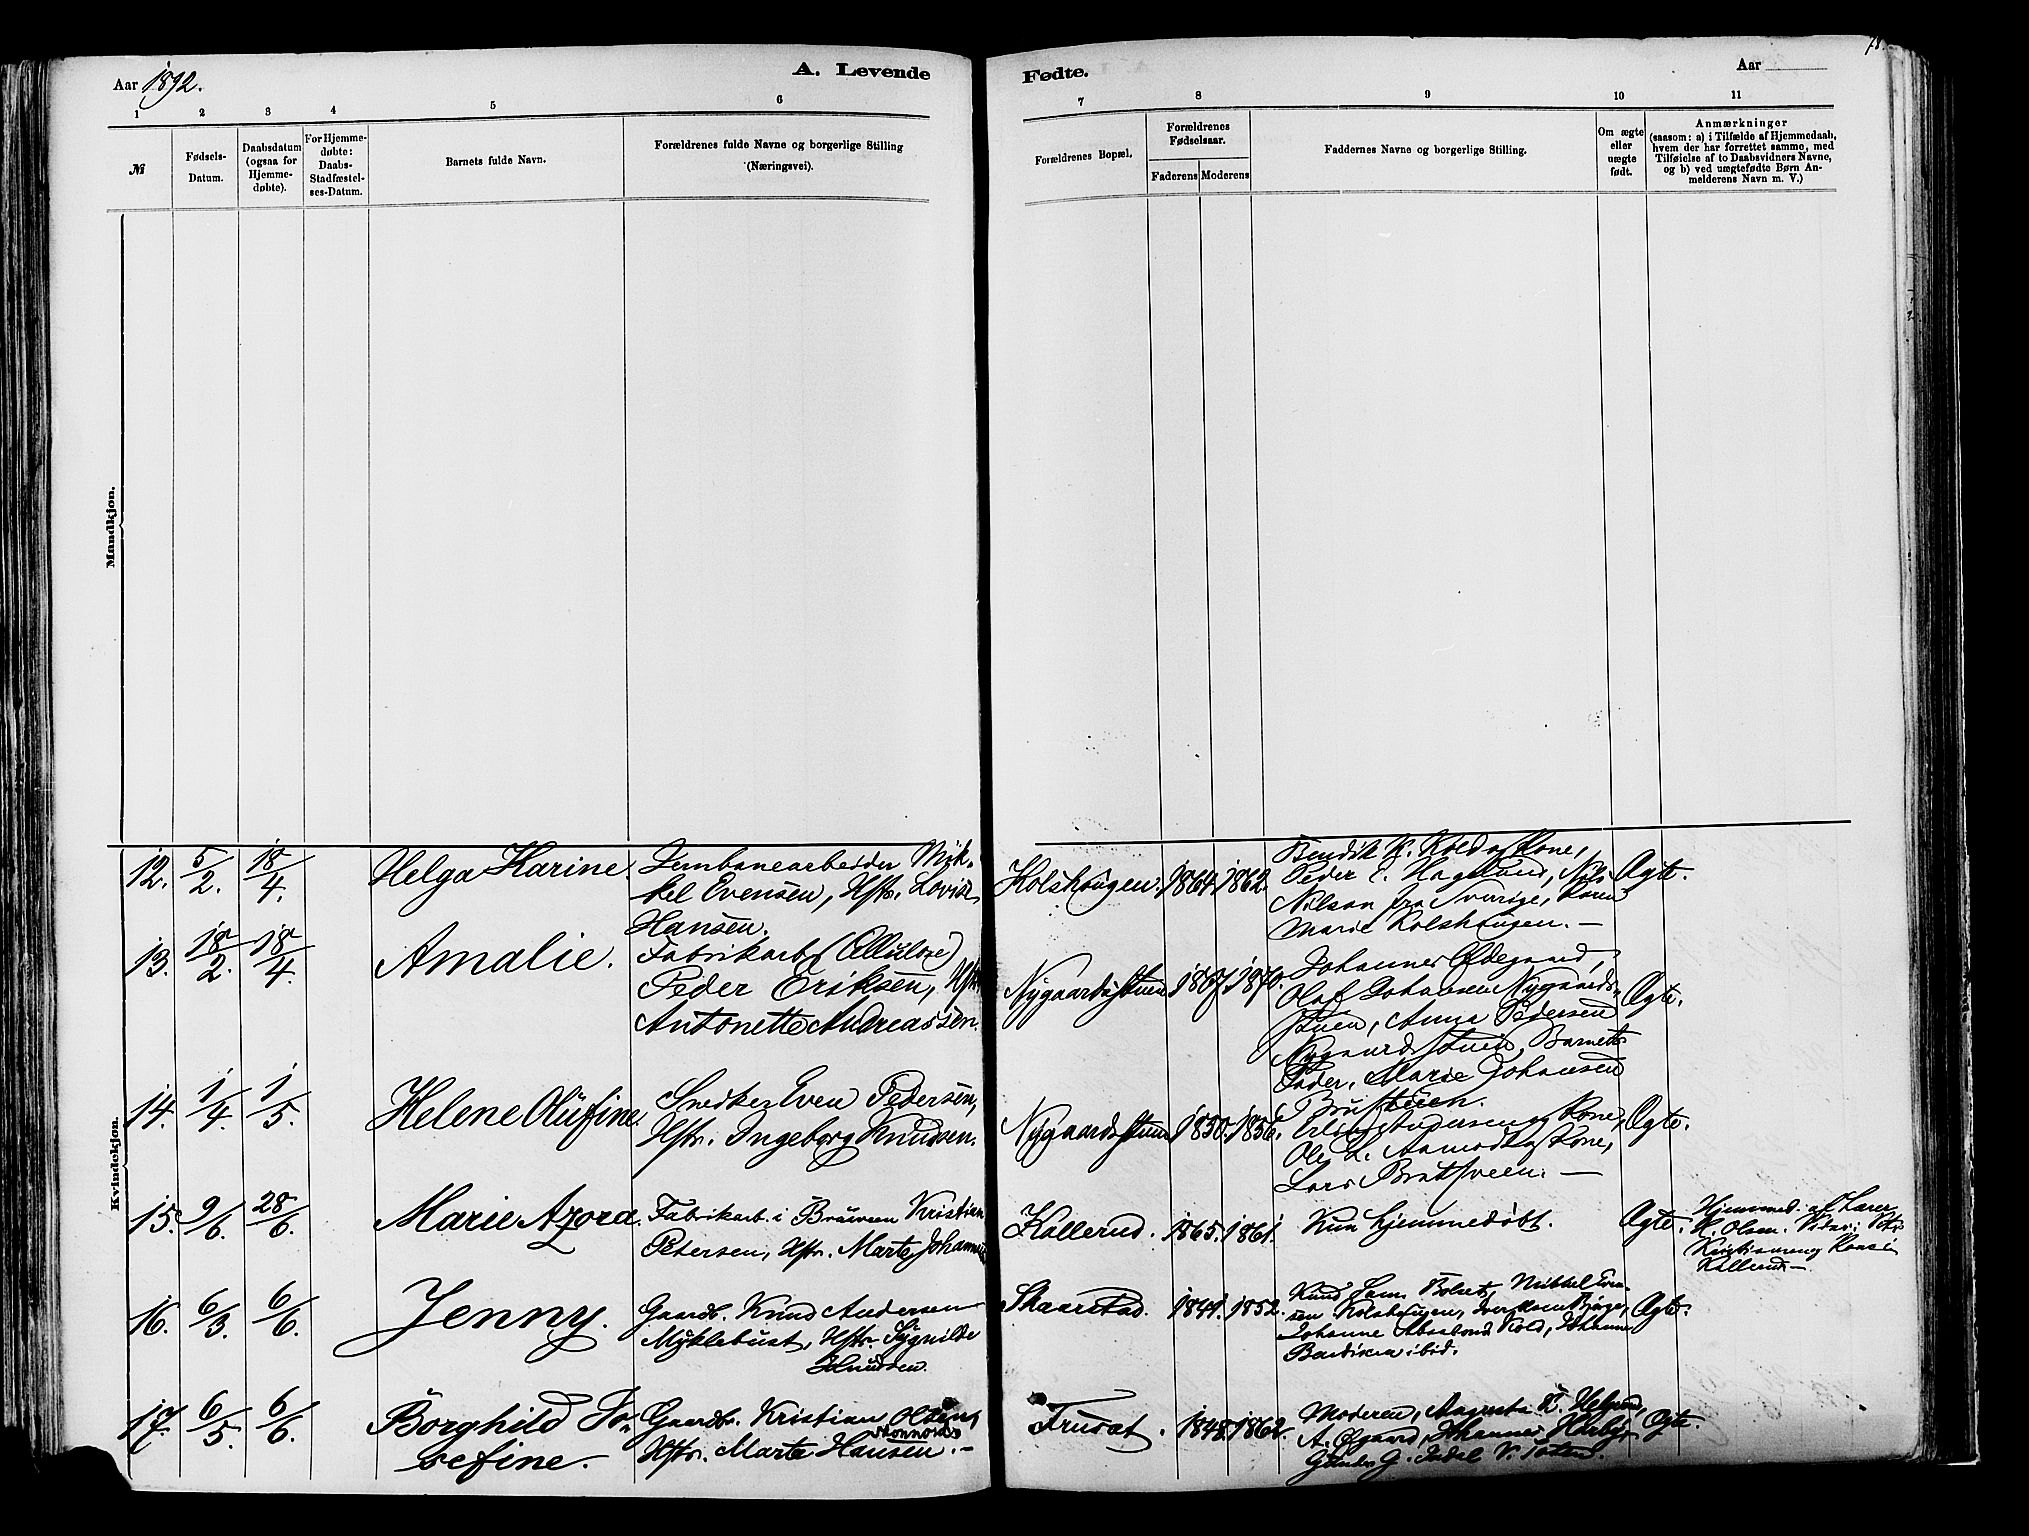 Aar 1892.
A. Levende
Fødte.
Aar
18.
1 2 3 4 5 6 7 8 9 10 11
№
Fødsels-
Datum.
Daabsdatum
(ogsaa for
Hjemme-
døbte).
For Hjemme-
døbte:
Daabs-
Stadfæstel-
ses-Datum.
Barnets fulde Navn.
Forældrenes fulde Navne og borgerlige Stilling
(Næringsvei).
Forældrenes Bopæl.
Forældrenes
Fødselsaar.
Faderens Moderens
Faddernes Navne og borgerlige Stilling.
Om ægte
eller
uægte
født.
Anmærkninger
(saasom: a) i Tilfælde af Hjemmedaab,
hvem der har forrettet samme, med
Tilføielse af to Daabsvidners Navne,
og b) ved uægtefødte Børn An-
melderens Navn m. V.)
Mandkjøn.
Kvindekjøn.
12. 5/2. 18/4. Helga Karine.
Jernbanearbeider Mik-
kel Evensen, Hstr. Lovise
Hansen.
Kolshougen. 1864. 1862.
Bendik K. Kold og Kone,
Peder E. Haglund, Nils
Nilson fra Sverige, Karen
Marie Kolshougen. —
Ægte.
13. 18/2. 18/4. Amalie.
Fabrikarb. (Cellulose)
Peder Eriksen, Hstr.
Antonette Andreassen.
Nygaardsstuen 1867. 1870.
Johannes Ødegaard,
Olaf Johansen Nygaards-
stuen, Anna Pedersen
Nygaardsstuen, Barnets
Fader, Marie Johansen
Brustuen.
Ægte.
14. 1/4. 1/5. Helene Olufine.
Snedker Even Pedersen,
Hstr. Ingeborg Knudsen.
Nygaardsstuen 1850. 1856.
Andersen og Kone,
Ole L. Aamodt og Kone,
Lars Bratsveen. —
Ægte.
15. 9/6. 28/6. Marie Azora.
Fabrikarb. i Bruveen Kristian
Petersen, Hstr. Marte
Kollerud. 1865. 1861.
Kun hjemmedøbt.
Ægte.
Hjemmed. af Lærer
H. Olsen.
Kollerud —
16. 6/3. 6/6. Jenny.
Gaardb. Knud Andersen
Myklebust, Hstr. Sygnilde
Knudsen.
Skaarstad. 1841. 1852.
Knud Sam. Bolset, Mikkel Even-
sen Kolshougen, Iver
Johanne Kold, Johanne
ibid.
Ægte.
17. 6/5. 6/6. Borghild Jo-
sefine.
Gaardb. Kristian Olsen,
Hstr. Marte Hansen. —
Frusæt. 1848. 1862.
Moderen, Augusta K.
A. Øgaard, Johannes
G. V. Toten.
Ægte.